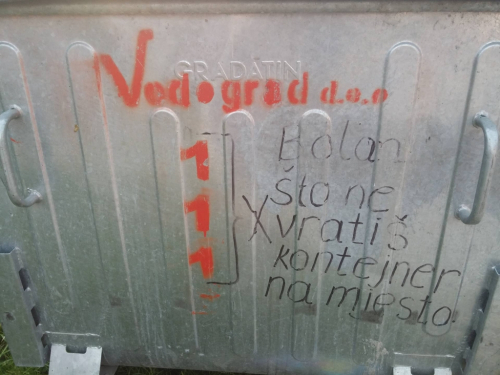 GRADATIN
Vodograd d.o.o
1
1
1
Bolan
što ne
vratiš
kontejner
na mjesto